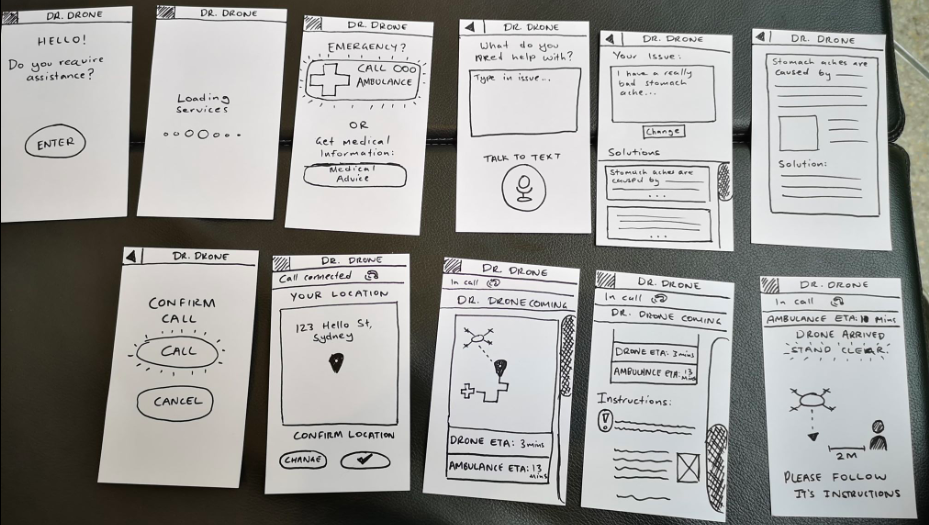 DR. DRONE
HELLO!
Do you require
assistance?
ENTER
DR. DRONE
Loading
Services
DR. DRONE
EMERGENCY?
CALL 000
AMBULANCE
OR
Get medical
Information:
Medical
Advice
DR. DRONE
What do you
need help with?
Type in issue...
TALK TO TEXT
DR. DRONE
Your Issue:
I have a really
bad stomach
ache...
Change
Solutions
Stomach aches are
caused by
...
...
DR. DRONE
Stomach aches are
caused by
Solution:
DR. DRONE
CONFIRM
CALL
CALL
CANCEL
DR. DRONE
Call connected
YOUR LOCATION
123 Hello St,
Sydney
CONFIRM LOCATION
CHANGE
DR. DRONE
In call
DR. DRONE COMING
DRONE ETA: 3mins
AMBULANCE ETA: 13
mins
DR. DRONE
In call
DR. DRONE COMING
DRONE ETA: 3mins
AMBULANCE ETA: 13
mins
Instructions:
DR. DRONE
In call
AMBULANCE ETA: 10 Mins
DRONE ARRIVED
STAND CLEAR.
2M
PLEASE FOLLOW
IT'S INSTRUCTIONS